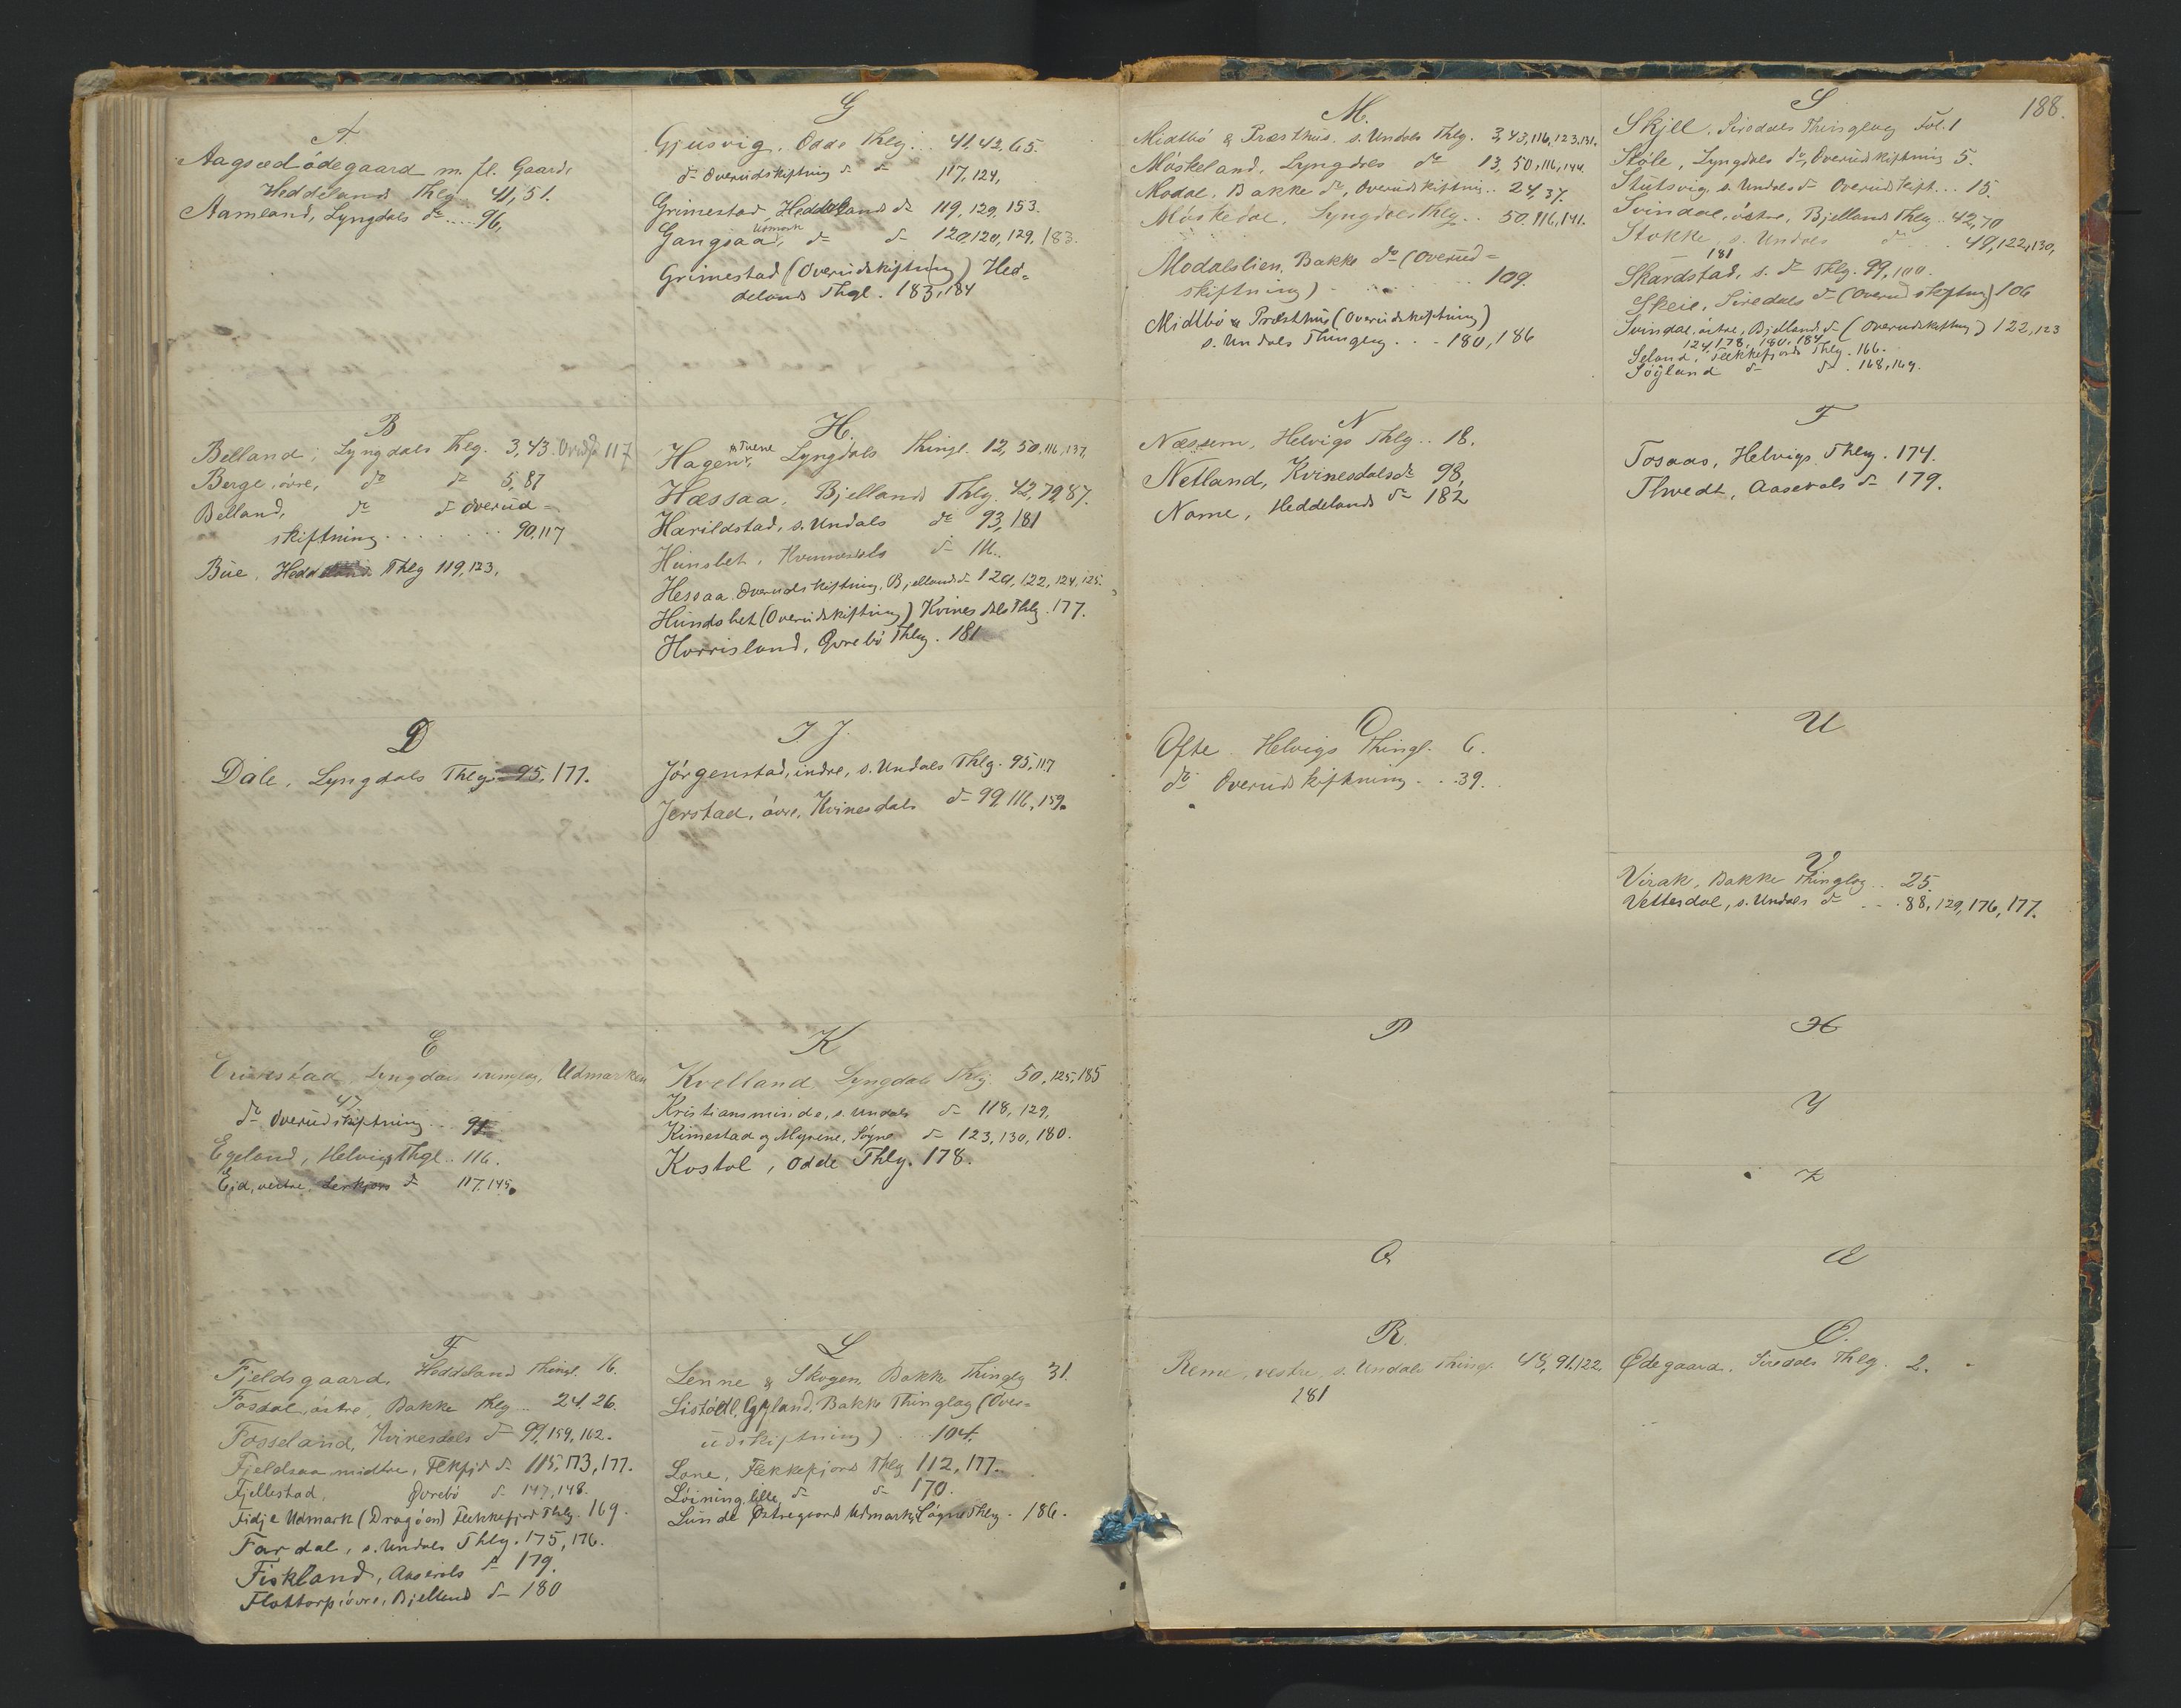 A.
Aagsædødegaard m. fl. Gaarde
Heddeland Thlg. 41, 51.
Aamland, Lyngdals do ..... 96,
B
Belland, Lyngdals Thlg. 3, 43. 117
Berge, övre, do do 5, 87
Belland, do do Overud=
skiftning . . . . . . . 90, 117
Büe, Thlg 119, 123,
D
Dale, Lyngdals Thlg. 95, 177.
E
Lyngdals Udmarken
47
do Overudskiftning ... 91
Egeland, Helvigs Thgl .. 116.
Eid, vestre, do 117, 145.
F
Fjeldsgaard, Heddeland Thingl. 16.
Fosdal, östre, Bakke Thlg ... 24, 26.
Fosseland, Kvinesdals do 99, 159, 162.
Fjeldsaa midtre, Flkfjd do 115, 173, 177.
Fjellestad, Øvrebö do 147, 148.
Fidje Udmark (Dragöen) Flekkefjord Thlg. 169.
Fardal, s. Undals Thlg. 175, 176.
Fiskland, Aaserals do 179.
Flottorp, övre, Bjelland do 180
G
Gjusvig, Odde Thlg ... 41, 42, 65.
do Overudskiftning do do 117, 124,
Grimestad, Heddelands do 119, 129, 153.
Gangsaa, Udmark do do 120, 120, 129, 183.
Grimestad (Overudskiftning) Hed=
delands Thgl. 183, 184
H.
Hagen Lyngdals Thingl. 12, 50, 116, 137,
Hæssaa, Bjellands Thlg. 42, 79, 87.
Harildstad, s. Undals do 93, 181
Hunsbet, do 111.
Hessaa Overudskiftning, Bjellands do 120, 122, 124, 125.
Hundsbet (Overudskiftning) Kvinesdals Thlg. 177.
Horrisland, Øvrebö Thlg. 181
I J.
Jörgenstad, indre, s. Undals Thlg. 95, 117
Jerstad, övre, Kvinesdals do 99, 116, 159.
K
Kvelland, Lyngdals Thlg 50, 125, 185
Kristiansminde, s. Undals do 118, 129,
Kimestad og Myrene, Søgne do 123, 130, 180.
Kostol, Odde Thlg. 178.
L
Lenne & Skogen, Bakke Thinglg 31.
Bakke Thinglag (Over=
udskiftning) .... 104.
Lone, Flekkefjords Thlg 112, 177.
Löining, lille, do do 170.
Lunde Østregaard Udmark, Søgne Thlg. 186.
M.
Midtbö & Præsthus, s. Undals Thlg. 3, 43, 116, 123, 131.
Möskeland, Lyngdals do 13, 50, 116, 144.
Modal, Bakke do, Overudskiftning .. 24, 37.
Möskedal, Lyngdals Thlg .. 50, 116, 141.
Modalslien, Bakke do (Overud=
skiftning) . . . . . . 109.
Midtbö & Præsthus (Overudskiftning)
s. Undals Thinglag . . . 180, 186
N
Næssem, Helvigs Thlg .. 18.
Netland, Kvinesdals do 98,
Nome, Heddelands do 182
O
Ofte Helvigs Thingl. 6.
do Overudskiftning . . . 39.
P
Q
R.
Reme, vestre, s. Undals Thingl. 48, 91, 122,
181
188.
S
Skjell, Siredals Thinglag Fol. 1
Stöle, Lyngdals do, Overudskiftning 5.
Stutsvig, s. Undals do Overudskift... 15.
Svindal, östre, Bjellands Thlg .. 42, 70
Stokke, s. Undals do . . . 49, 122, 130,
181
Skardstad, s. do Thlg. 99, 100.
Skeie, Siredals do (Overudskiftning) 106
Svindal, östre, Bjellands do (Overudskiftning) 122, 123
124, 178, 180, 184
Seland, Flekkefjords Thlg. 166.
Söyland do do . 168, 169.
T
Tosaas, Helvigs Thlg. 174.
Thvedt, Aaserals do 179.
U
V
Virak, Bakke Thinglag .. 25.
Vettesdal, s. Undals do . . . 88, 129, 176, 177.
X
Y
Z
Æ
Ø.
Ødegaard, Siredals Thlg. 2.